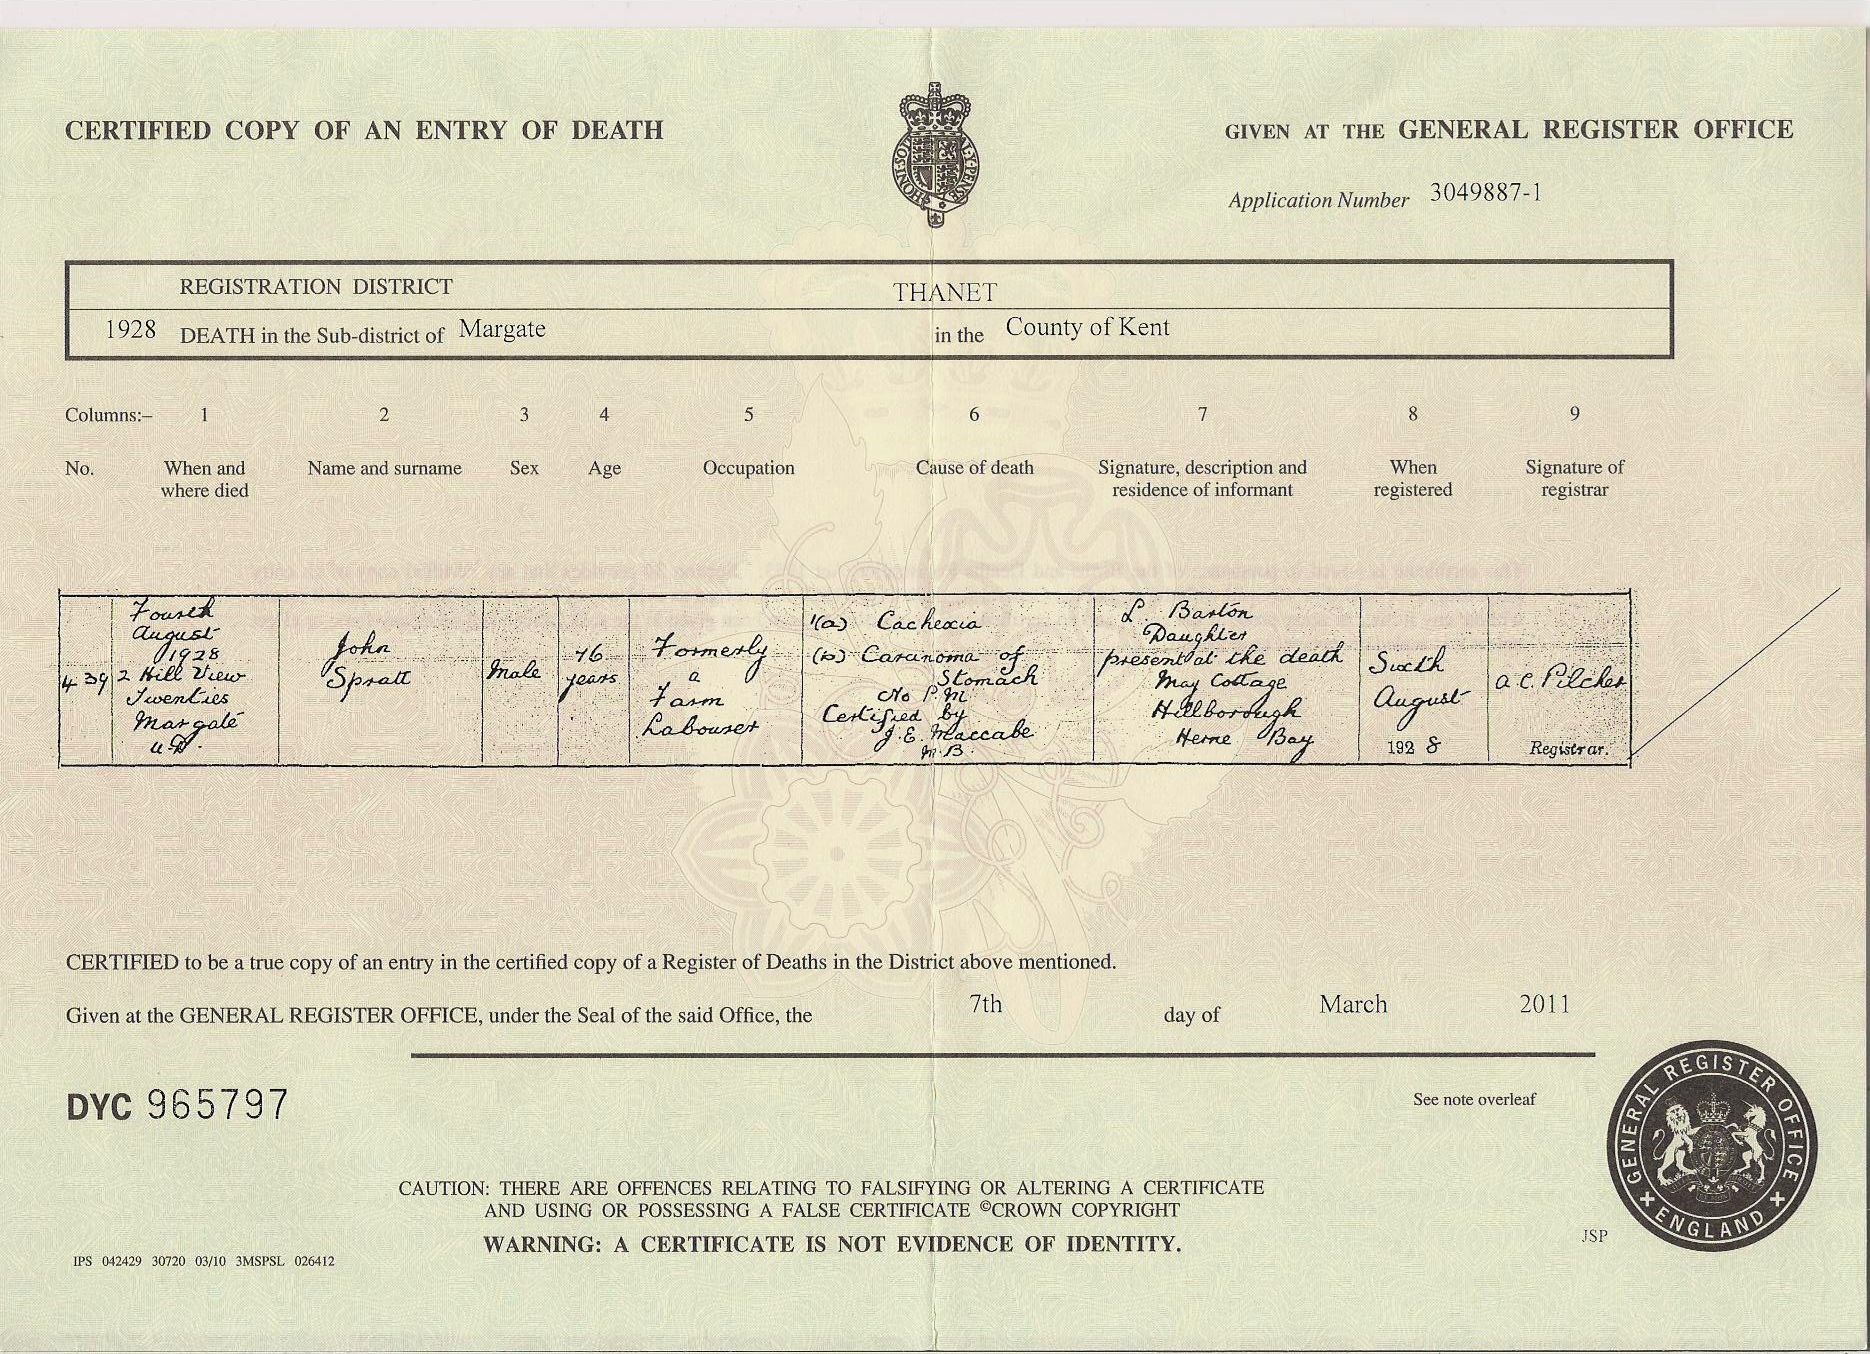 CERTIFIED COPY OF AN ENTRY OF DEATH
GIVEN AT THE GENERAL REGISTER OFFICE
Application Number 3049887-1
REGISTRATION DISTRICT THANET
1928 DEATH in the Sub-district of Margate in the County of Kent
Columns:– 1 2 3 4 5 6 7 8 9
No. When and where died
Name and surname
Sex
Age
Occupation
Cause of death
Signature, description and
residence of informant
When
registered
Signature of
registrar
439
Fourth
August
1928
2 Hill View
Twenties
Margate
U.D.
John
Spratt
Male
76
years
Formerly
a
Farm
Labourer
1(a) Cachexia
(b) Carcinoma of
Stomach
No P.M
Certified by
J. E. Maccabe
M.B.
L. Barton
Daughter
present at the death
May Cottage
Hillborough
Herne Bay
Sixth
August
1928
A C. Pilcher
Registrar.
CERTIFIED to be a true copy of an entry in the certified copy of a Register of Deaths in the District above mentioned.
Given at the GENERAL REGISTER OFFICE, under the Seal of the said Office, the 7th day of March 2011
DYC 965797
See note overleaf
CAUTION: THERE ARE OFFENCES RELATING TO FALSIFYING OR ALTERING A CERTIFICATE
AND USING OR POSSESSING A FALSE CERTIFICATE ©CROWN COPYRIGHT
WARNING: A CERTIFICATE IS NOT EVIDENCE OF IDENTITY.
IPS 042429 30720 03/10 3MSPSL 026412
JSP
GENERAL REGISTER OFFICE
ENGLAND